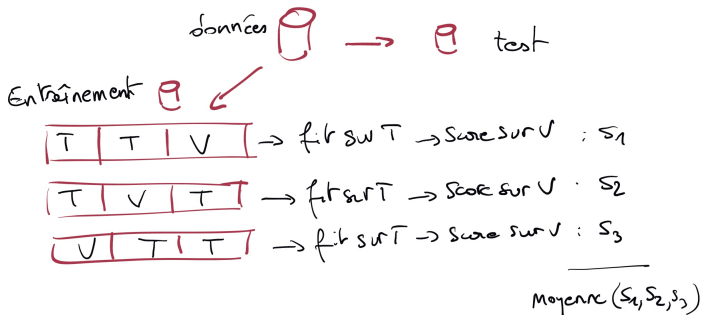 données → test
Entraînement
T T V → fit sur T → Score sur V : S1
T V T → fit sur T → Score sur V : S2
V T T → fit sur T → Score sur V : S3
Moyenne (S1, S2, S3)